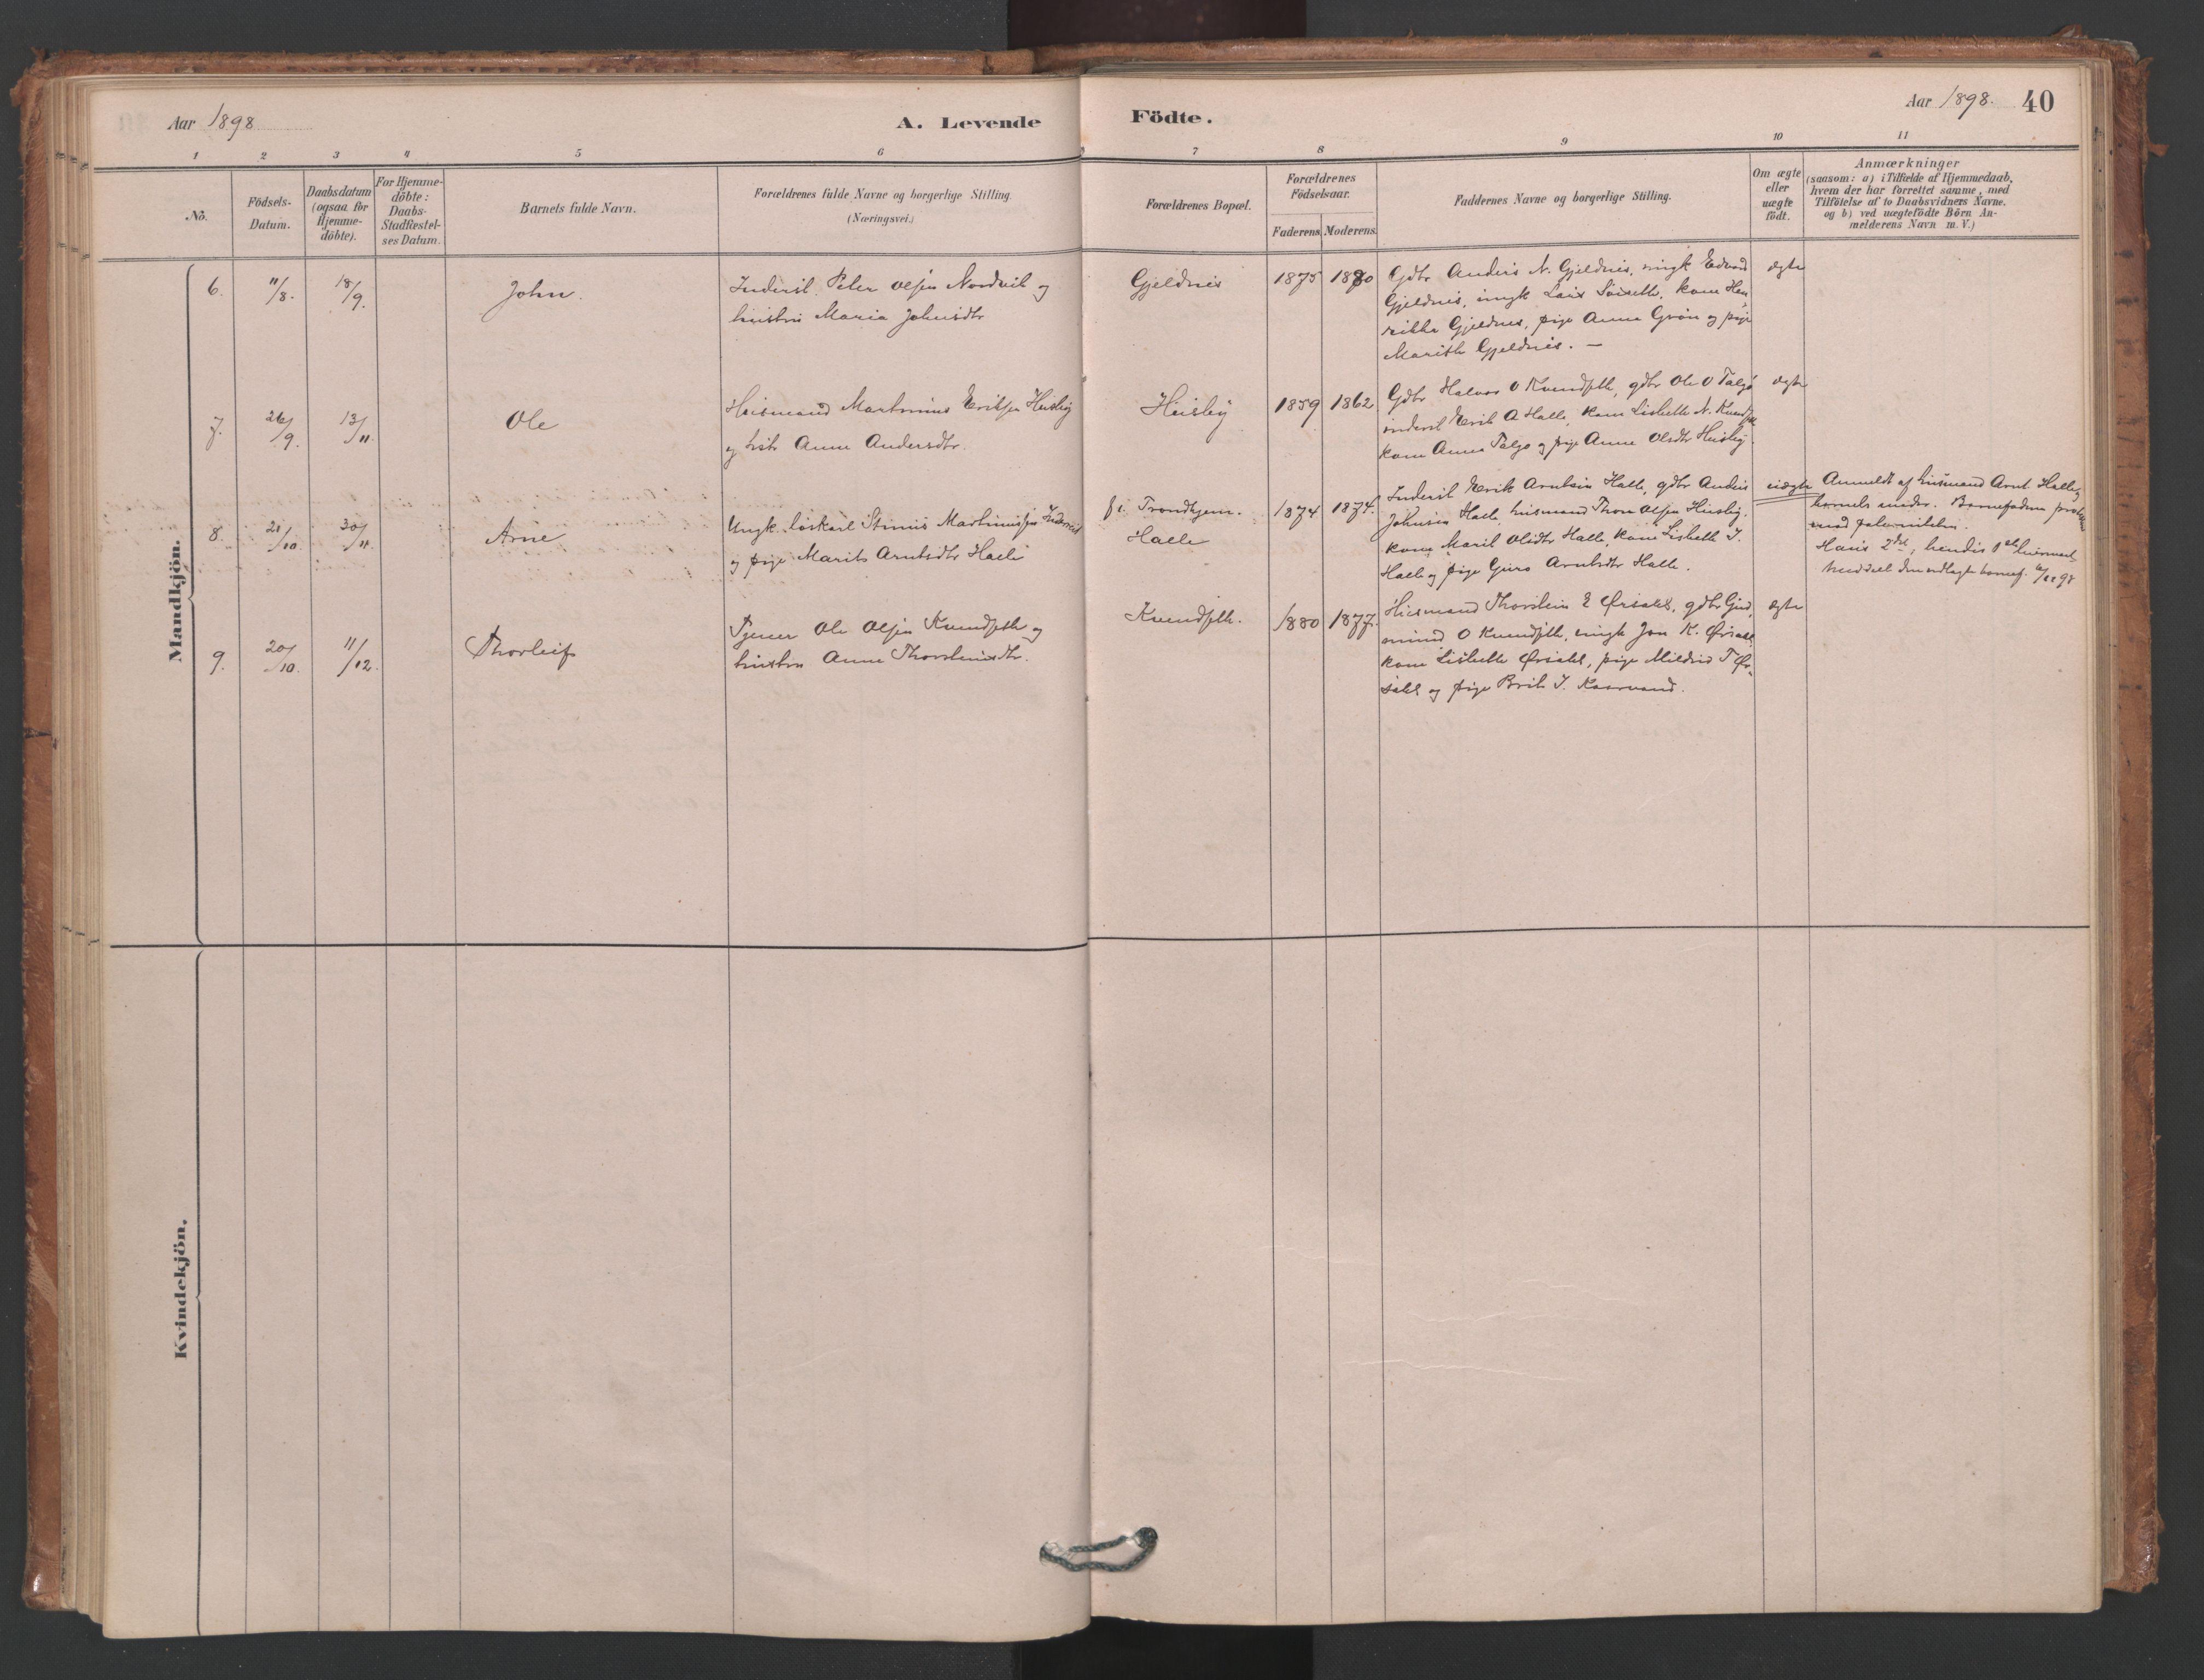 Aar 1898
A. Levende Födte.
Aar 1898. 40
1 2 3 4 5 6 7 8 9 10 11
No.
Födsels-Datum.
Daabsdatum (ogsaa for Hjemme-döbte).
For Hjemme-döbte: Daabs-Stadfæstel-ses Datum.
Barnets fulde Navn.
Forældrenes fulde Navne og borgerlige Stilling.
(Næringsvei.)
Forældrenes Bopæl.
Forældrenes Födselsaar.
Faderens. Moderens.
Faddernes Navne og borgerlige Stilling.
Om ægte eller uægte födt.
Anmærkninger
(saasom: a) i Tilfælde af Hjemmedaab,
hvem der har forrettet samme, med
Tilföielse af to Daabsvidners Navne,
og b) ved uægtefödte Börn An-
melderens Navn m. V.)
Mandkjön.
6. 11/8. 18/9. John.
Inderst Peter Olsen Nordvik og
hustru Maria Johnsdtr
Gjeldnes 1875 1880
Gdbr Anders N. Gjeldnes, ungk Edvard
Gjeldnes, ungk Lars Søiseth, kone Hen-
rikke Gjeldnes, pige Anne Grøn og pige
Marith Gjeldnes. —
ægte
7. 26/9. 13/11. Ole
Husmand Martinus Eriksen Husby
og hstr Anne Andersdtr.
Husby 1859 1862
Gdbr Halvor O Kvendseth, gdbr Ole O Talgø
inderst Erik A Halle, kone Lisbeth N. Kvendseth
kone Anne Talgø og pige Anne Olsdtr Husby.
ægte
8. 21/10. 30/11. Arne
Ungk. løskarl Martinussen
og pige Marit Arntsdtr Halle
f: Trondhjem. 1874 1874.
Halle
Inderst Erik Arntsen Halle, gdbr Anders
Johnsen Halle, husmand Thore Olsen Husby.
kone Marit Olsdtr Halle, kone Lisbeth J.
Halle og pige Guro Arntsdtr Halle.
uægte
Anmeldt af husmand Arnt Halle,
barnets moder. Barnefaderen
mod paterniteten.
Hans 2det, hendes 1ste leiermaal
9. 20/10. 11/12. Thorleif
Tjener Ole Olsen Kvendseth og
hustru Anne Thorsteinsdtr.
Kvendseth. 1880 1877.
Husmand Thorstein E Ørsahl, gdbr Gud-
mund O Kvendseth, ungk Jon K. Ørsahl
kone Lisbeth Ørsahl, pige Mildrid T Ør-
sahl og pige Brit J. Kaarvand.
ægte
Kvindekjön.